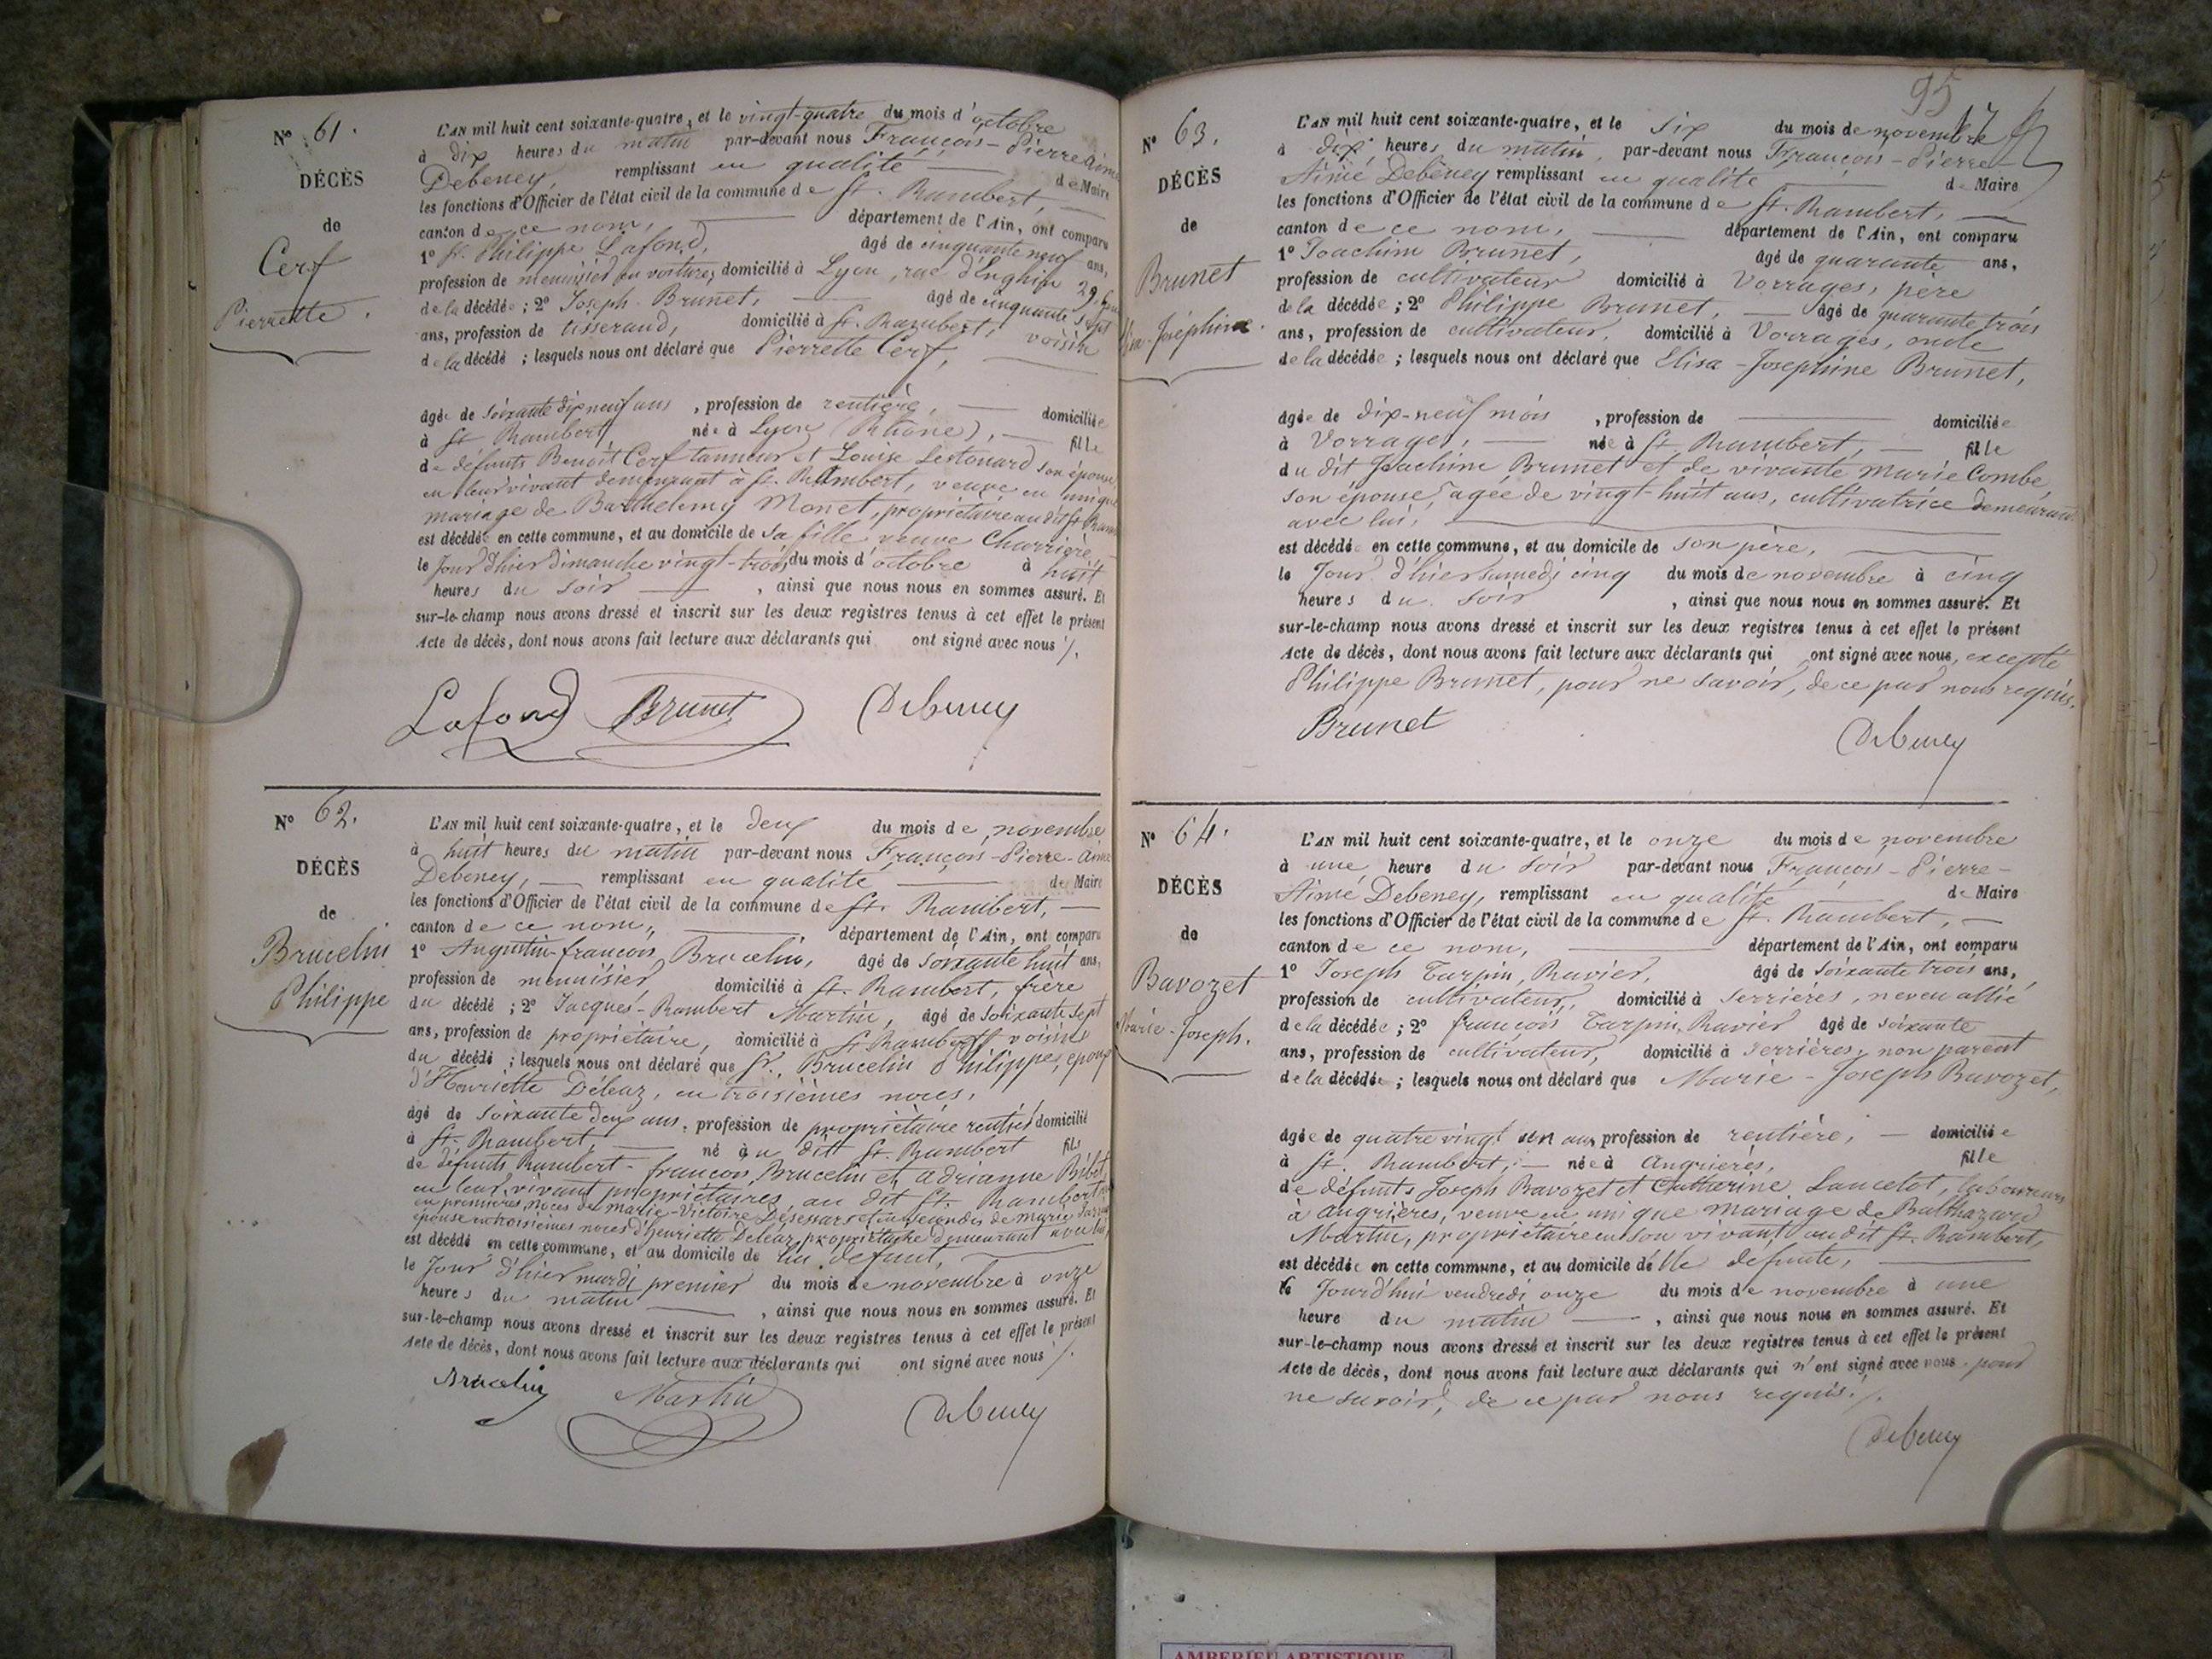 N° 61.
DÉCÈS
de
Cerf
Pierrette.
L'AN mil huit cent soixante-quatre, et le vingt-quatre du mois d'octobre
à dix heures du matin par-devant nous François-Pierre Aimé
Debeney, remplissant en qualité de Maire
les fonctions d'Officier de l'état civil de la commune de St. Rambert,
canton de ce nom, département de l'Ain, ont comparu
1° Sr. Philippe Lafond, âgé de cinquante neuf ans,
profession de menuisier en voitures, domicilié à Lyon, rue d'Enghien 29,
de la décédée; 2° Joseph Brunet, âgé de cinquante sept
ans, profession de tisserand, domicilié à St. Rambert, voisin
de la décédé; lesquels nous ont déclaré que Pierrette Cerf,
âgée de soixante dix neuf ans, profession de rentière, domiciliée
à St. Rambert née à Lyon (Rhône), fille
de défunts Benoit Cerf tanneur et Louise Lestonard son épouse
en leur vivant demeurant à St. Rambert, veuve en unique
mariage de Barthelemy Monet, propriétaire au dit St. Rambert
est décédée en cette commune, et au domicile de sa fille veuve Charrière,
le Jour d'hier dimanche vingt-trois du mois d'octobre à huit
heures du soir, ainsi que nous nous en sommes assuré. Et
sur-le-champ nous avons dressé et inscrit sur les deux registres tenus à cet effet le présent
Acte de décès, dont nous avons fait lecture aux déclarants qui ont signé avec nous /.
Lafond Brunet Debeney
N° 62.
DÉCÈS
de
Brucelin
Philippe
L'AN mil huit cent soixante-quatre, et le deux du mois de novembre
à huit heures du matin par-devant nous François-Pierre-Aimé
Debeney, remplissant en qualité de Maire
les fonctions d'Officier de l'état civil de la commune de St. Rambert,
canton de ce nom, département de l'Ain, ont comparu
1° Augustin-françois Brucelin, âgé de soixante huit ans,
profession de menuisier, domicilié à St. Rambert, frère
du décédé; 2° Jacques-Rambert Martin, âgé de soixante sept
ans, profession de propriétaire, domicilié à St. Rambert voisin
du décédé; lesquels nous ont déclaré que Sr. Brucelin Philippe, époux
d'Henriette Déléaz, en troisièmes noces,
âgé de soixante deux ans, profession de propriétaire rentier domicilié
à St. Rambert, né au dit St. Rambert fils
de défunts Rambert-françois Brucelin et adrianne Bibet
en leur vivant propriétaires au dit St. Rambert
en premières noces de Marie-Victoire Désessars et en secondes de marie
épouse en troisièmes noces d'henriette Déléaz, propriétaire demeurant avec lui,
est décédé en cette commune, et au domicile de lui défunt,
le Jour d'hier mardi premier du mois de novembre à onze
heures du matin, ainsi que nous nous en sommes assuré. Et
sur-le-champ nous avons dressé et inscrit sur les deux registres tenus à cet effet le présent
Acte de décès, dont nous avons fait lecture aux déclarants qui ont signé avec nous /.
Brucelin Martin Debeney
95
17
N° 63.
DÉCÈS
de
Brunet
Elisa-Joséphine.
L'AN mil huit cent soixante-quatre, et le six du mois de novembre
à dix heures du matin, par-devant nous François-Pierre
Aimé Debeney remplissant en qualité de Maire
les fonctions d'Officier de l'état civil de la commune de St. Rambert,
canton de ce nom, département de l'Ain, ont comparu
1° Joachim Brunet, âgé de quarante ans,
profession de cultivateur domicilié à Vorrages, père
de la décédée; 2° Philippe Brunet, âgé de quarante trois
ans, profession de cultivateur, domicilié à Vorrages, oncle
de la décédée; lesquels nous ont déclaré que Elisa-Josephine Brunet,
âgée de dix-neuf mois, profession de domiciliée
à Vorrages, née à St. Rambert, fille
du dit Joachim Brunet et de vivante Marie Combe,
son épouse, agée de vingt-huit ans, cultivatrice demeurant
avec lui,
est décédée en cette commune, et au domicile de son père,
le Jour d'hier samedi cinq du mois de novembre à cinq
heures du soir, ainsi que nous nous en sommes assuré. Et
sur-le-champ nous avons dressé et inscrit sur les deux registres tenus à cet effet le présent
Acte de décès, dont nous avons fait lecture aux déclarants qui ont signé avec nous, excepté
Philippe Brunet, pour ne savoir, de ce par nous requis.
Brunet Debeney
N° 64.
DÉCÈS
de
Bavozet
Marie-Joseph.
L'AN mil huit cent soixante-quatre, et le onze du mois de novembre
à une heure du soir par-devant nous François-Pierre-
Aimé Debeney, remplissant en qualité de Maire
les fonctions d'Officier de l'état civil de la commune de St. Rambert,
canton de ce nom, département de l'Ain, ont comparu
1° Joseph Tarpin, Ravier, âgé de soixante trois ans,
profession de cultivateur, domicilié à Serrières, neveu allié
de la décédée; 2° françois Tarpin Ravier âgé de soixante
ans, profession de cultivateur, domicilié à Serrières, non parent
de la décédée; lesquels nous ont déclaré que Marie-Joseph Bavozet,
âgée de quatre vingt un ans profession de rentière, domiciliée
à St. Rambert, née à Angrières, fille
de défunts Joseph Bavozet et Catherine Lancelot, laboureurs
à angrières, veuve en unique mariage de Balthazard
Martin, propriétaire en son vivant au dit St. Rambert,
est décédée en cette commune, et au domicile d'elle défunte,
le Jourd'hui vendredi onze du mois de novembre à une
heure du matin, ainsi que nous nous en sommes assuré. Et
sur-le-champ nous avons dressé et inscrit sur les deux registres tenus à cet effet le présent
Acte de décès, dont nous avons fait lecture aux déclarants qui n'ont signé avec nous, pour
ne savoir, de ce par nous requis./.
Debeney
AMBERIEU ARTISTIQUE